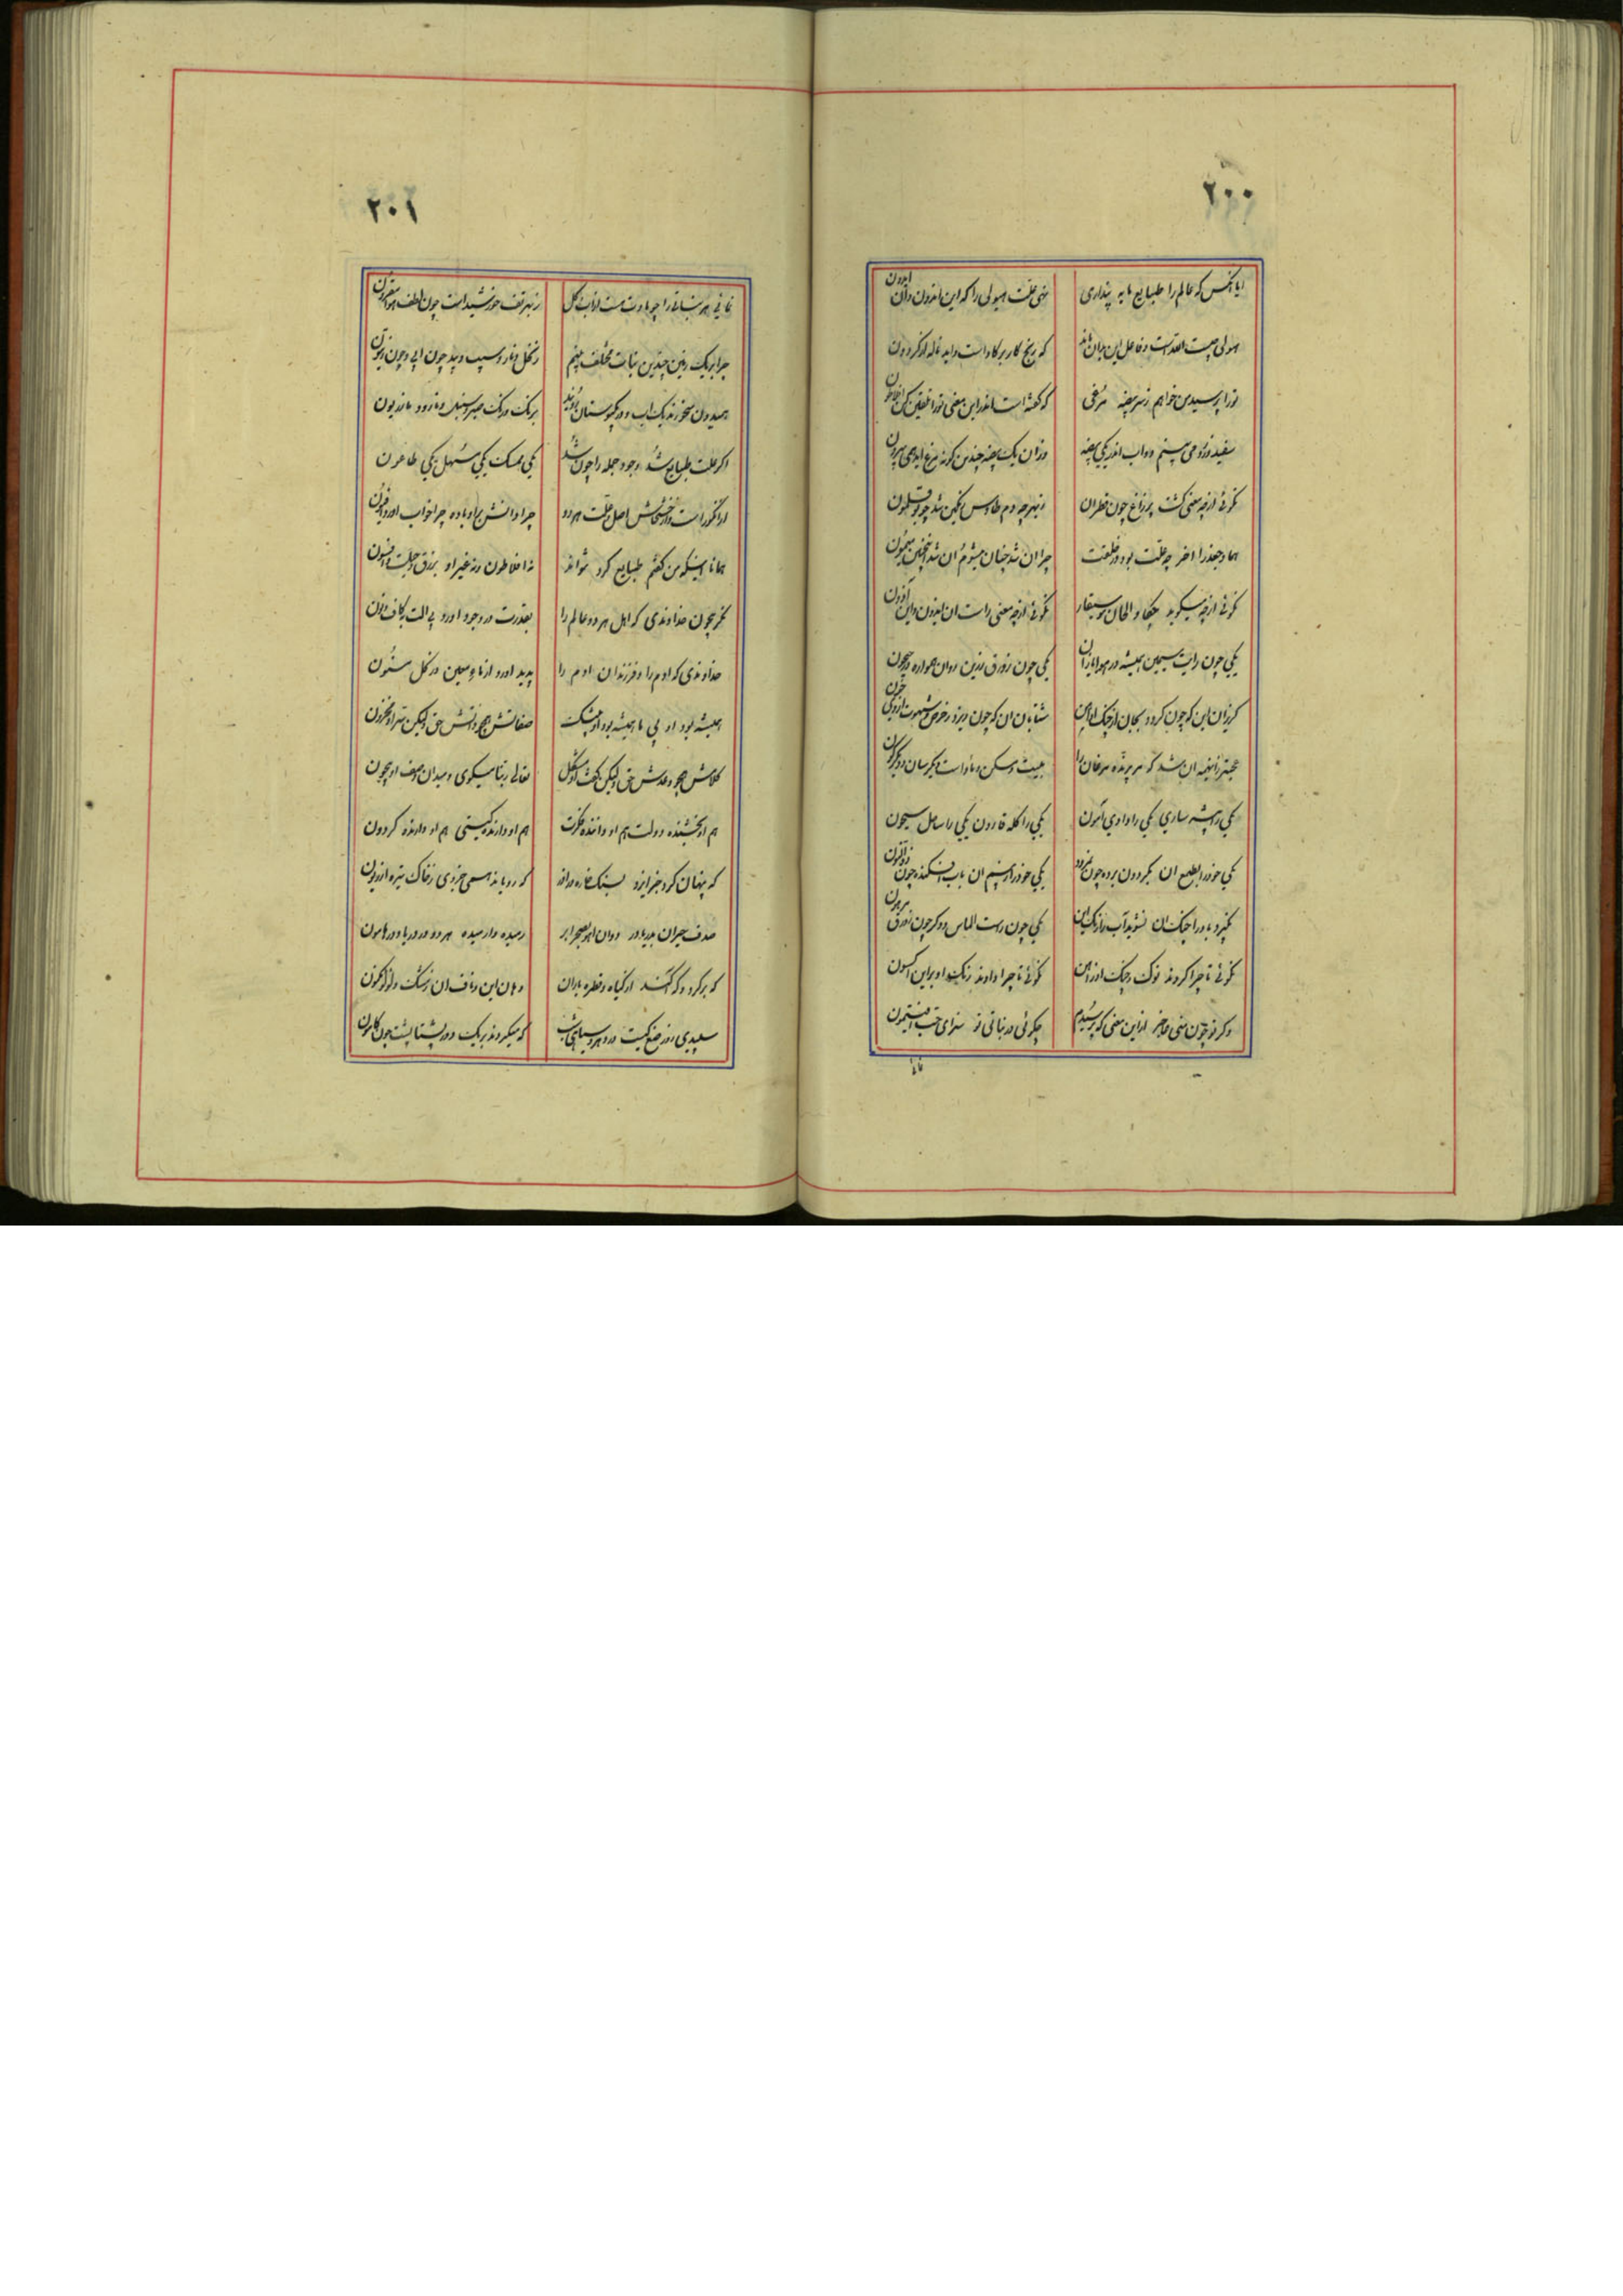 ۲۰۰
ایا آنکس که عالم را طبایع مایه پنداری
نهی علت هیولی را که این ایدون وان ایدون
هیولی چیست الله است و فاعل این بدان ماند
که رنج کار بر کاو است و اید ناله از کردون
تورا پرسیدن خواهم ز سر بیضه مرغی
که کفته است اندر این معنی تورا تلقین کن افلاطون
سفید و زرد می بینم دو اب اندر یکی بیضه
وزان یک بیضه چندین کونه مرغ اید همی بیرون
نکوئی از چه معنی کشت پر زاغ چون قطران
ز بهر چه دم طاوس رنکین شد چو بوقلمون
هما و جغد را اخر چه علت بود در خلقت
چرا ان شد چنان میشوم ان شد اینچنین میمون
نکوئی از چه میکوید چکاو الحان موسیقار
نکوئی از چه معنی راست ان ایدون و این آذون
یکی چون رایت سیمین همیشه در هوا یازان
یکی چون زورق زرین روان همواره در جیحون
کریزان این که چون کردد بجان از چنک او ایمن
شتابان ان که چون ریزد ز حرص و شهوت از وی خون
عجبتر زینهمه ان شد که هر پرنده مرغان را
به بیت و مسکن و ماوا است دیکر سان و دیکرکون
یکی را بیشه ساری یکی را وادی آمون
یکی را کله قارون یکی را ساحل سیحون
یکی خود را بطمع ان بکردون برده چون نمرود
یکی خود را ز بیم ان باب افکنده چون ذوالنون
نکیرد باد را چنک ان نشوید آب رنک این
یکی چون رست الماس و دکر چون زورق مدهون
نکوئی تا چرا کردند نوک و چنک او ز آهن
نکوئی تا چرا دادند رنک او بر این اکسون
وکر تو چون منی عاجز از این معنی که پرسیدم
چکوئی در نباتی تو سزای حب افتیمون
۲۰۱
نمائی هر نباتی را چو مادت هست از آب و کل
ز بهر تف خورشید است چون لطف هوا مقرون
چرا بر یک زمین چندین نبات مختلف بینم
ز نخل و نار و سیب و بید چون ابی و چون زیتون
همیدون میخورند یک اب و در یک بوستان رویند
برنک ورنک صبر و سنبل و مازو و مازریون
اکر علت طبایع شد وجود جمله را چون شد
یکی ممسک یکی مسهل یکی طاعون
از انکور است و از خشخاش اصل و علت هر دو
چرا دانش برد باده چرا خواب اورد افیون
همانا اینکه من کفتم طبایع کرد نتواند
نه افلاطون و نه غیر او بزرق و حیلت و افسون
مکر بیچون خداوندی که اهل هر دو عالم را
بقدرت در وجود اورد بی الت بکاف و نون
خداوندی که ادم را و فرزندان ادم را
پدید اورد از ماء معین در کل مسنون
همیشه بود او بی ما همیشه بود او بیشک
صفاتش همچو ذاتش حق ولیکن سر او مخزون
کلامش همچو وعدش حق ولیکن کفت او مشکل
تعالی ربنا میکوی و میدان وصف او بیچون
هم او بخشنده دولت هم او داننده فکرت
هم او دارنده کیتی هم او دارنده کردون
که پنهان کرد جز ایزد بسنک خاره در اذر
که رویاند همی جز وی ز خاک تیره اذریون
صدف حیران بدریا در دوان اهو بصحرا بر
رسیده وارمیده هر دو در دریا و در هامون
که پر کرد و که آکند از کیاه و قطره باران
دهان این و ناف ان ز مشک و لولو مکنون
سپیدی روز صنع کیست در دهر و سیاهی شب
که میکردند بر یک دور پشتاپشت چون کانون